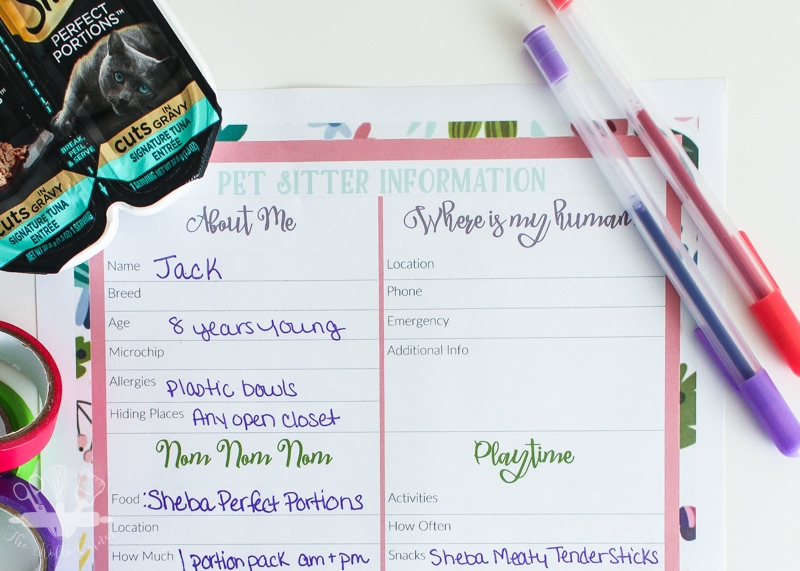 PERFECT
PORTIONS™
BREAK,
PEEL
& SERVE
cuts IN GRAVY
SIGNATURE TUNA
ENTRÉE
cuts IN GRAVY
SIGNATURE TUNA
ENTRÉE
PET SITTER INFORMATION
About Me
Name Jack
Breed
Age 8 years young
Microchip
Allergies plastic bowls
Hiding Places Any open closet
Where is my human
Location
Phone
Emergency
Additional Info
Nom Nom Nom
Food : Sheba Perfect Portions
Location
How Much 1 portion pack am + pm
Playtime
Activities
How Often
Snacks Sheba Meaty Tender Sticks